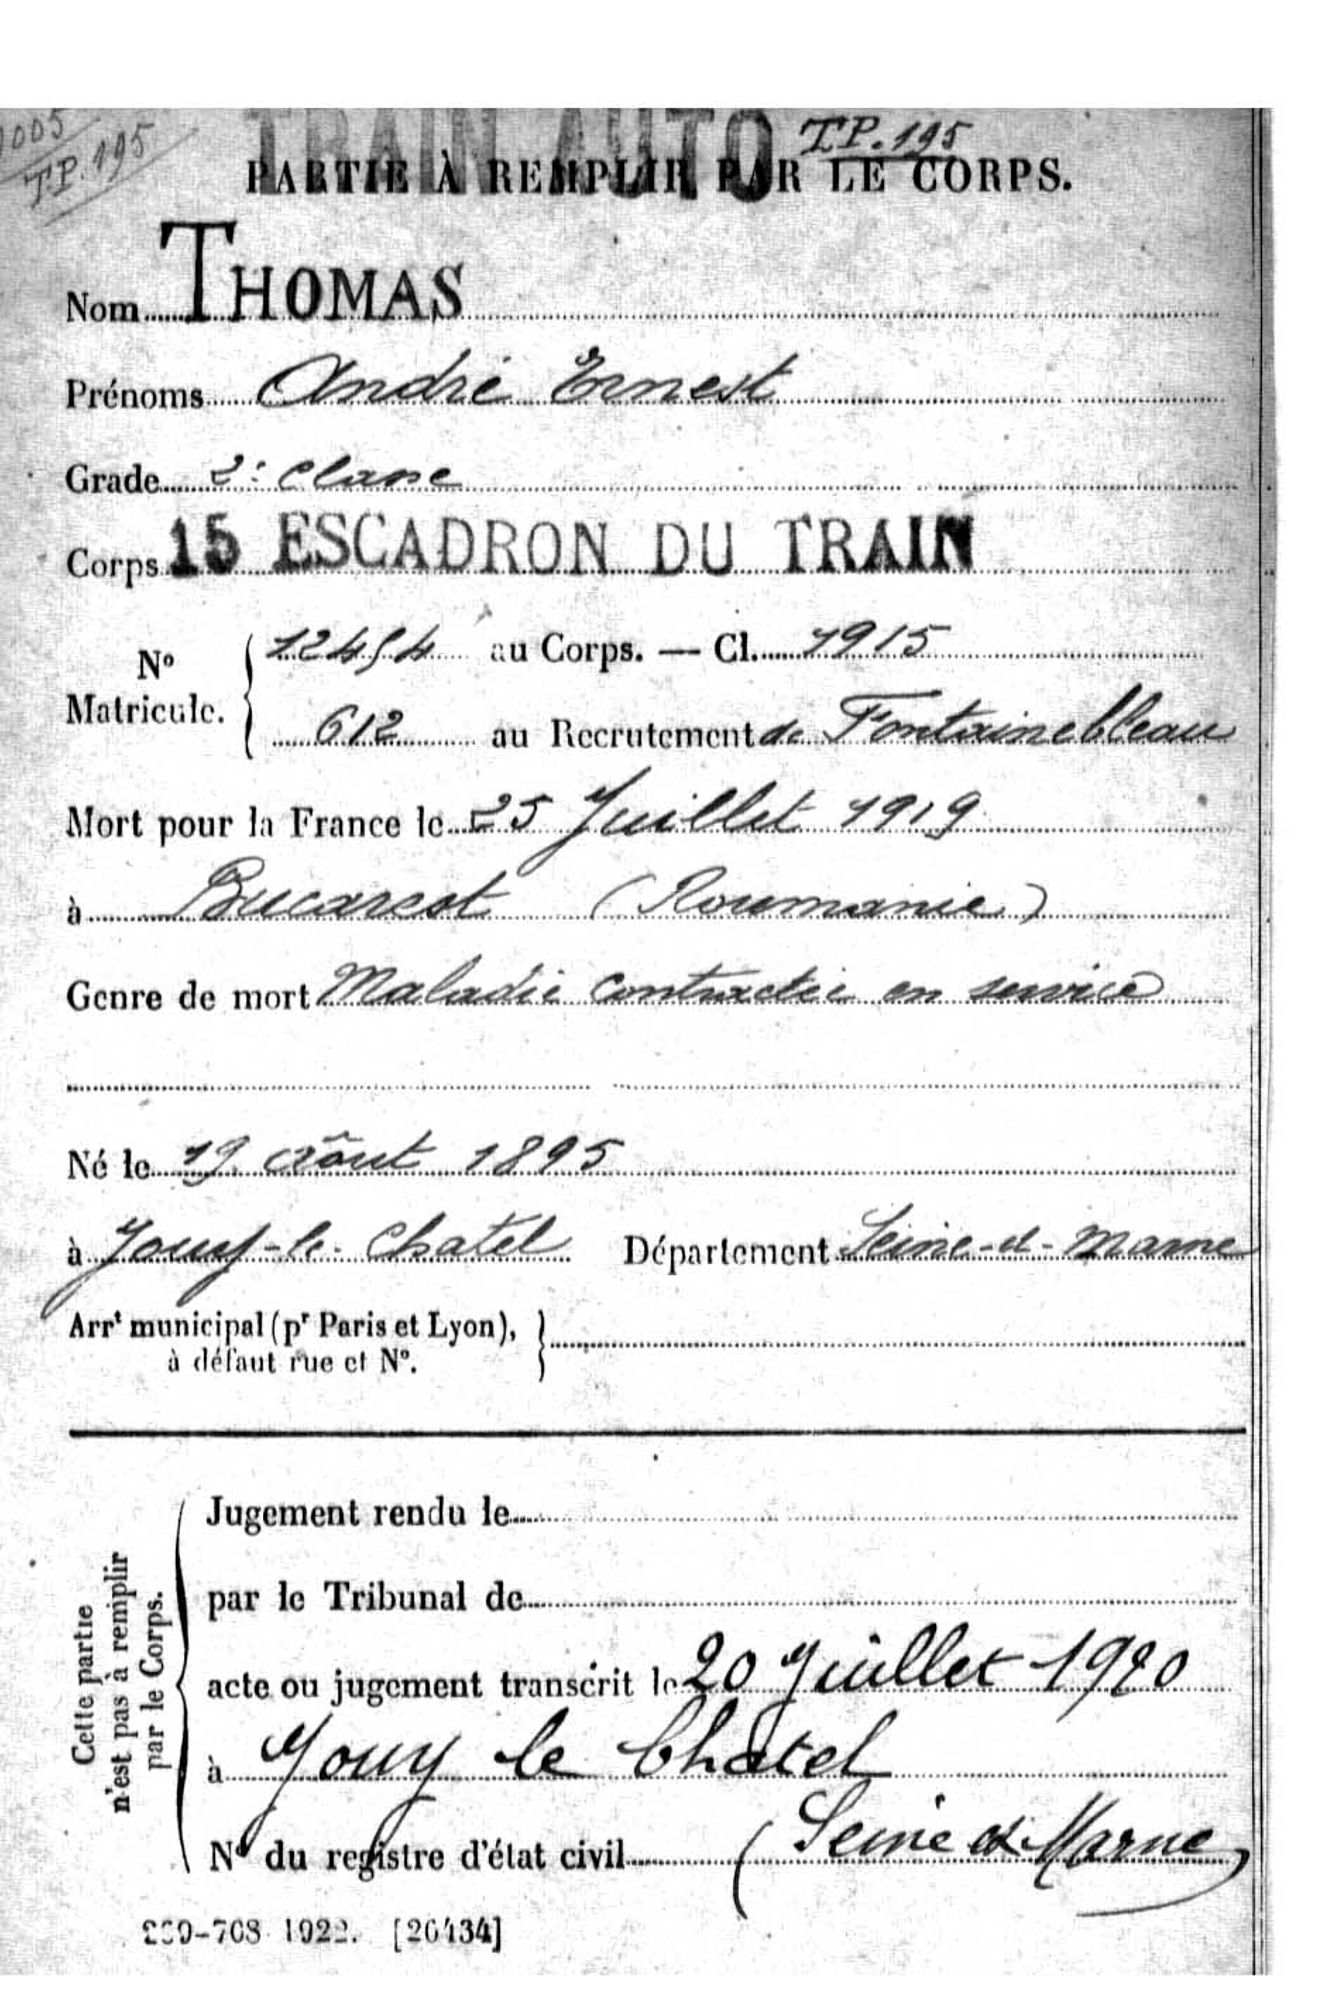 TRAIN AUTO T.P. 195
T.P. 195
PARTIE À REMPLIR PAR LE CORPS.
Nom THOMAS
Prénoms André Ernest
Grade 2e Classe
Corps 15 ESCADRON DU TRAIN
No Matricule. { 12454 au Corps. — Cl. 1915
612 au Recrutement de Fontainebleau
Mort pour la France le 25 Juillet 1919
à Bucarest (Roumanie)
Genre de mort Maladie contractée en service
Né le 19 Août 1895
à Jouy-le-Chatel Département Seine-et-Marne
Arrt municipal (pr Paris et Lyon), }
à défaut rue et No.
Cette partie
n'est pas à remplir
par le Corps.
Jugement rendu le
par le Tribunal de
acte ou jugement transcrit le 20 Juillet 1920
à Jouy le Chatel
No du registre d'état civil (Seine et Marne)
1922. [26434]